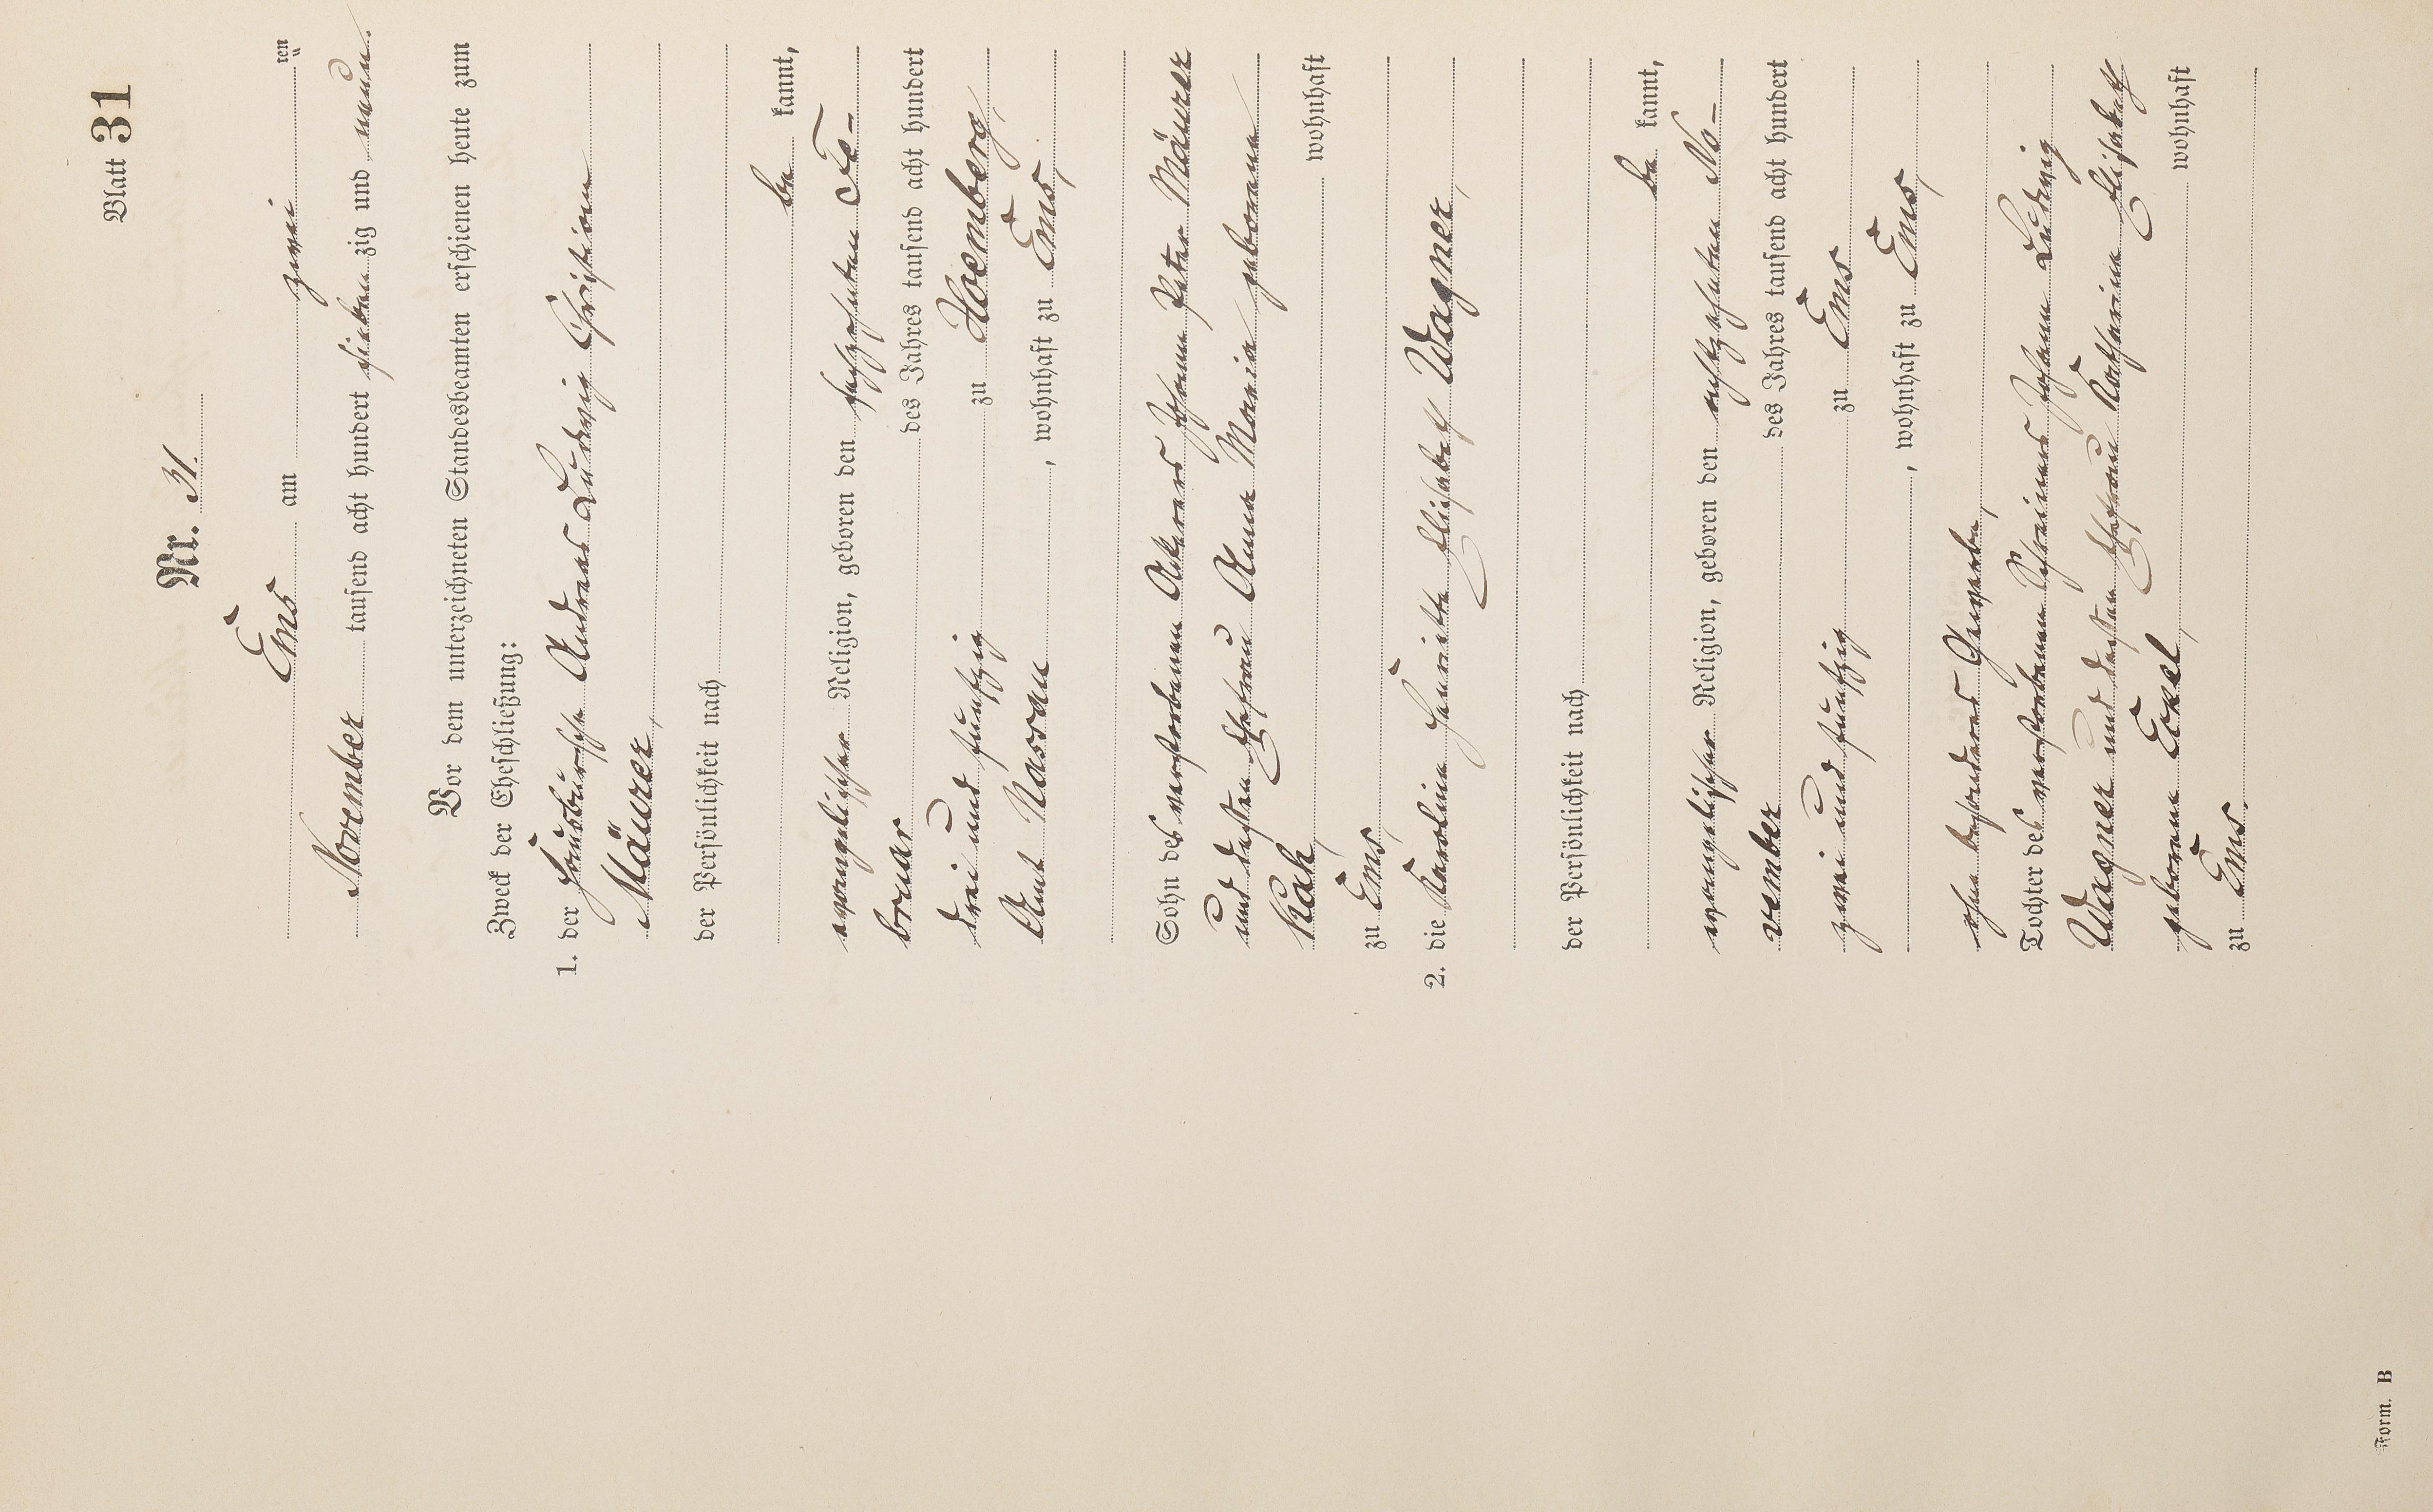 Blatt 31
Nr. 31.
Ems am zwei ten
November tausend acht hundert sieben zig und neun.
Vor dem unterzeichneten Standesbeamten erschienen heute zum
Zweck der Eheschließung:
1. der Hausbursche Andreas Ludwig Christian
Mäurer,
der Persönlichkeit nach
be kannt,
evangelischer Religion, geboren den sechszehnten Fe-
bruar des Jahres tausend acht hundert
drei und fünfzig zu Hoemberg,
Amt Nassau, wohnhaft zu Ems,
Sohn des verstorbenen Ackerers Johann Peter Mäurer
und dessen Ehefrau Anna Maria geborene
Kah, wohnhaft
zu Ems,
2. die Karoline Henriette Elisabeth Wagner,
der Persönlichkeit nach
be kannt,
evangelischer Religion, geboren den achtzehnten No-
vember des Jahres tausend acht hundert
zwei und fünfzig zu Ems
, wohnhaft zu Ems,
ohne besonderes Gewerbe,
Tochter des verstorbenen Schreiners Johann Ludwig
Wagner und dessen Ehefrau Katharine Elisabeth
geborene Eckel, wohnhaft
zu Ems.
Form. B